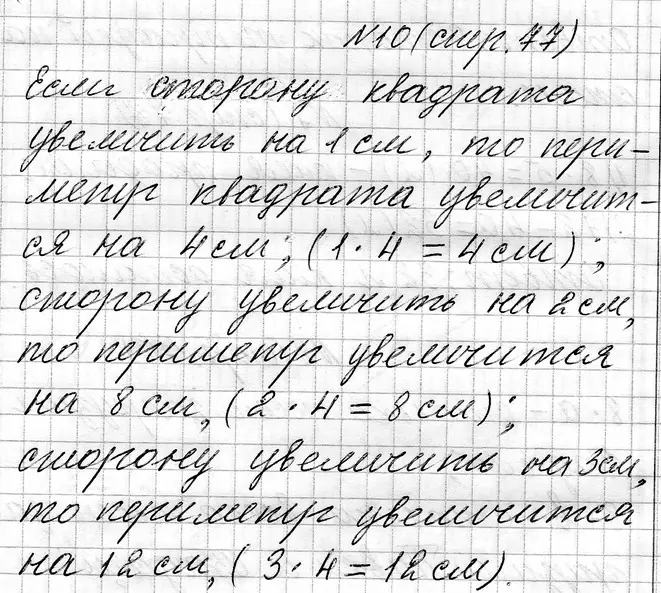 №10 (стр. 77)
Если сторону квадрата
увеличить на 1 см, то пери-
метр квадрата увеличит-
ся на 4 см; (1 · 4 = 4 см);
сторону увеличить на 2 см,
то периметр увеличится
на 8 см, (2 · 4 = 8 см);
сторону увеличить на 3 см,
то периметр увеличится
на 12 см, (3 · 4 = 12 см).